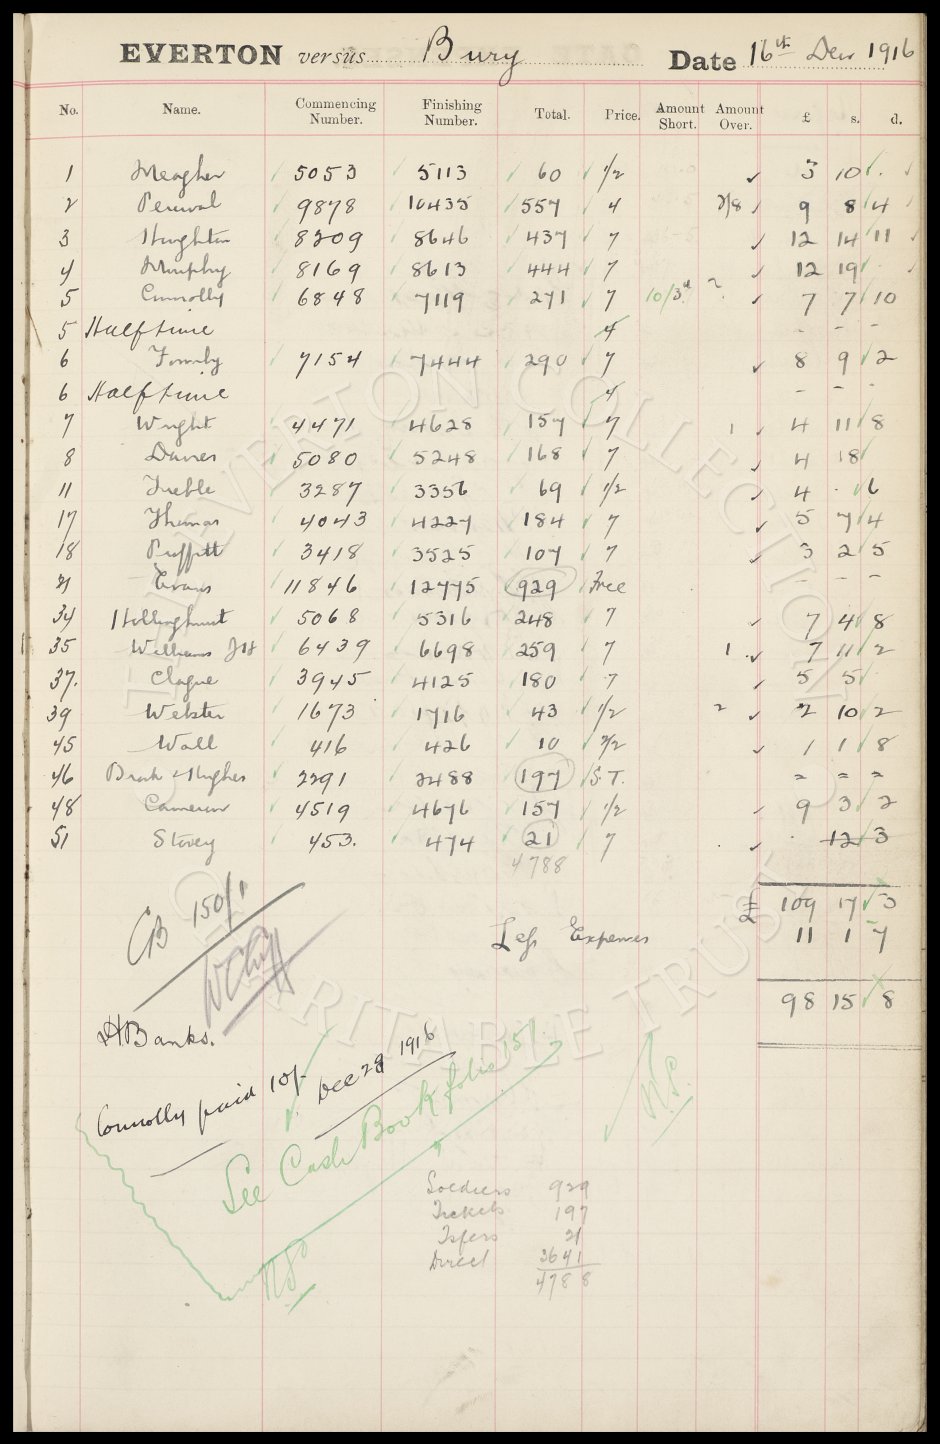 EVERTON versus Bury Date 16th Dec 1916
No. Name. Commencing Number. Finishing Number. Total. Price. Amount Short. Amount Over. £ s. d.
1 Meagher 5053 5113 60 1/2 3 10 .
2 Percival 9878 10435 557 4 2/8 9 8 4
3 Houghton 8209 8646 437 7 12 14 11
4 Murphy 8169 8613 444 7 12 19
5 Connolly 6848 7119 271 7 10/3d 2 7 7 10
5 Halftime 4 - - -
6 Formby 7154 7444 290 7 8 9 2
6 Halftime 4 - - -
7 Wright 4471 4628 157 7 1 4 11 8
8 Davies 5080 5248 168 7 4 18
11 Treble 3287 3356 69 1/2 4 . 6
17 Thomas 4043 4227 184 7 5 7 4
18 Proffitt 3418 3525 107 7 3 2 5
21 Evans 11846 12775 929 Free - - -
34 Hollinghurst 5068 5316 248 7 7 4 8
35 Williams JH 6439 6698 259 7 1 7 11 2
37. Clague 3945 4125 180 7 5 5
39 Webster 1673 1716 43 1/2 2 2 10 2
45 Wall 416 426 10 2/2 1 1 8
46 Brook & Hughes 2291 2488 197 S.T. = = =
48 Cameron 4519 4676 157 1/2 9 3 2
51 Stovey 453. 474 21 7 12 3
4788
£ 109 17 3
CB 150/1
Less Expenses 11 1 7
98 15 8
H Banks.
Connolly paid 10/- Dec 28 1916
See Cash Book folio 151.
Soldiers 929
Tickets 197
Tsfers 21
Direct 3641
4788
EVERTON COLLECTION CHARITABLE TRUST